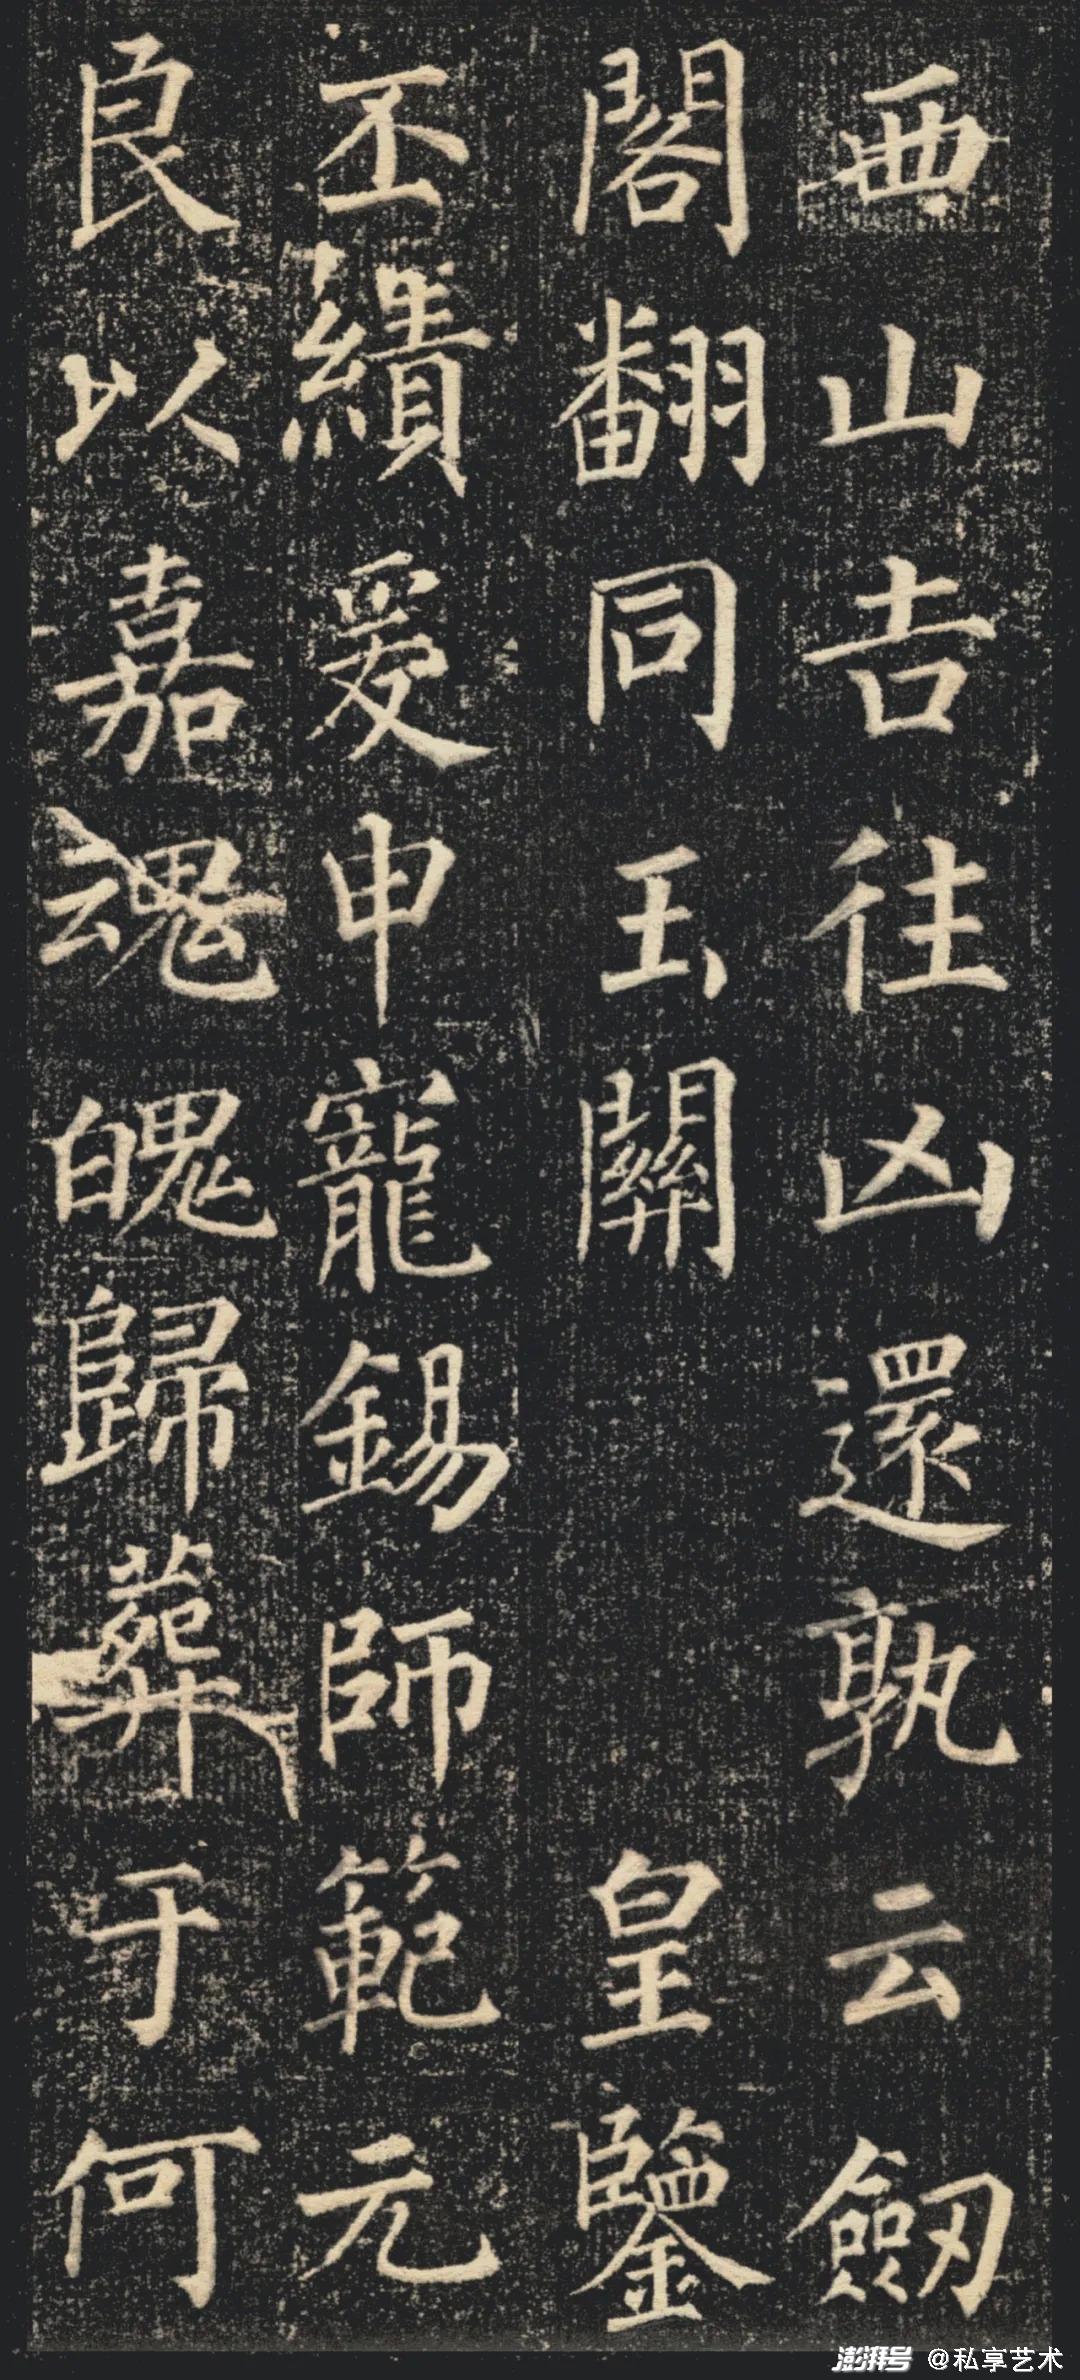 西山吉往凶還孰云劒
閣翻同玉關皇鑒
丕績爰申寵錫師範元
良以嘉魂魄歸葬于何
澎湃号 @私享艺术